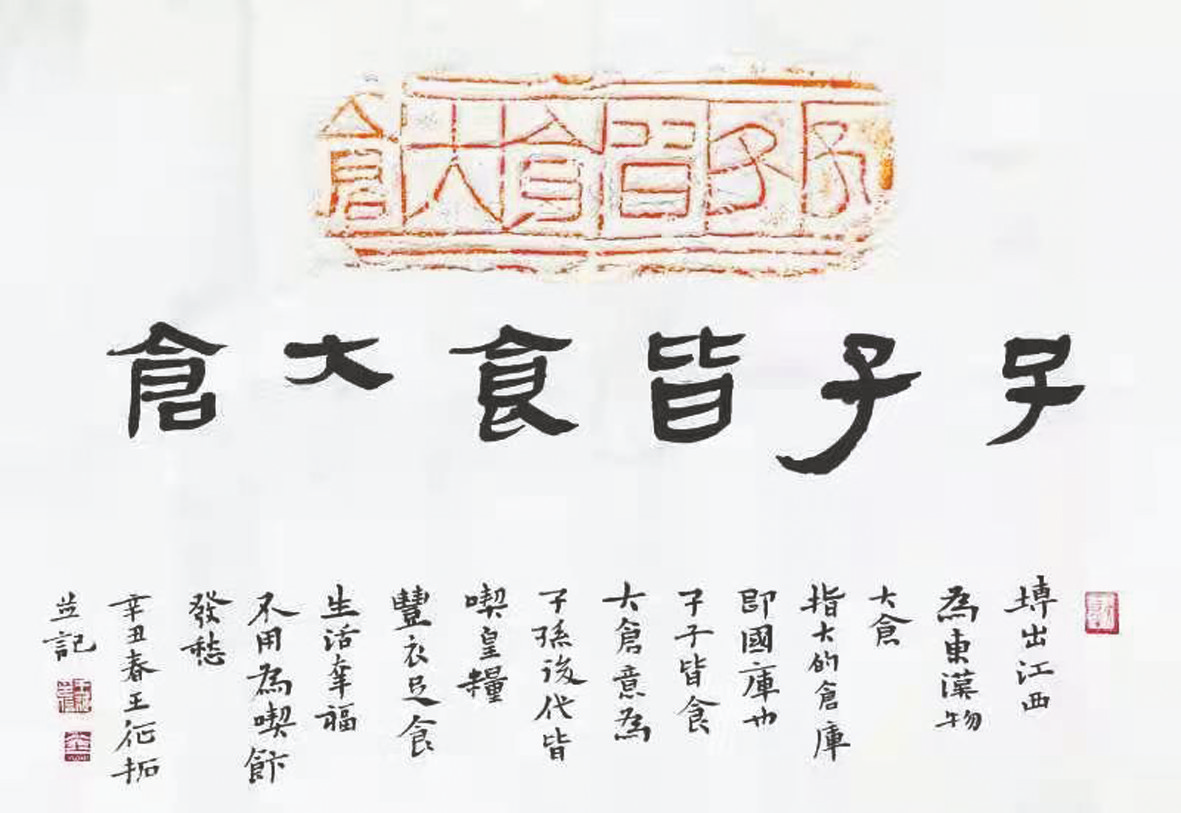 子子皆食大倉
子子皆食大倉
塼出江西
為東漢物
大倉
指大的倉庫
即國庫也
子子皆食
大倉意為
子孫後代皆
喫皇糧
豐衣足食
生活幸福
不用為喫飰
發愁
辛丑春王征拓
並記